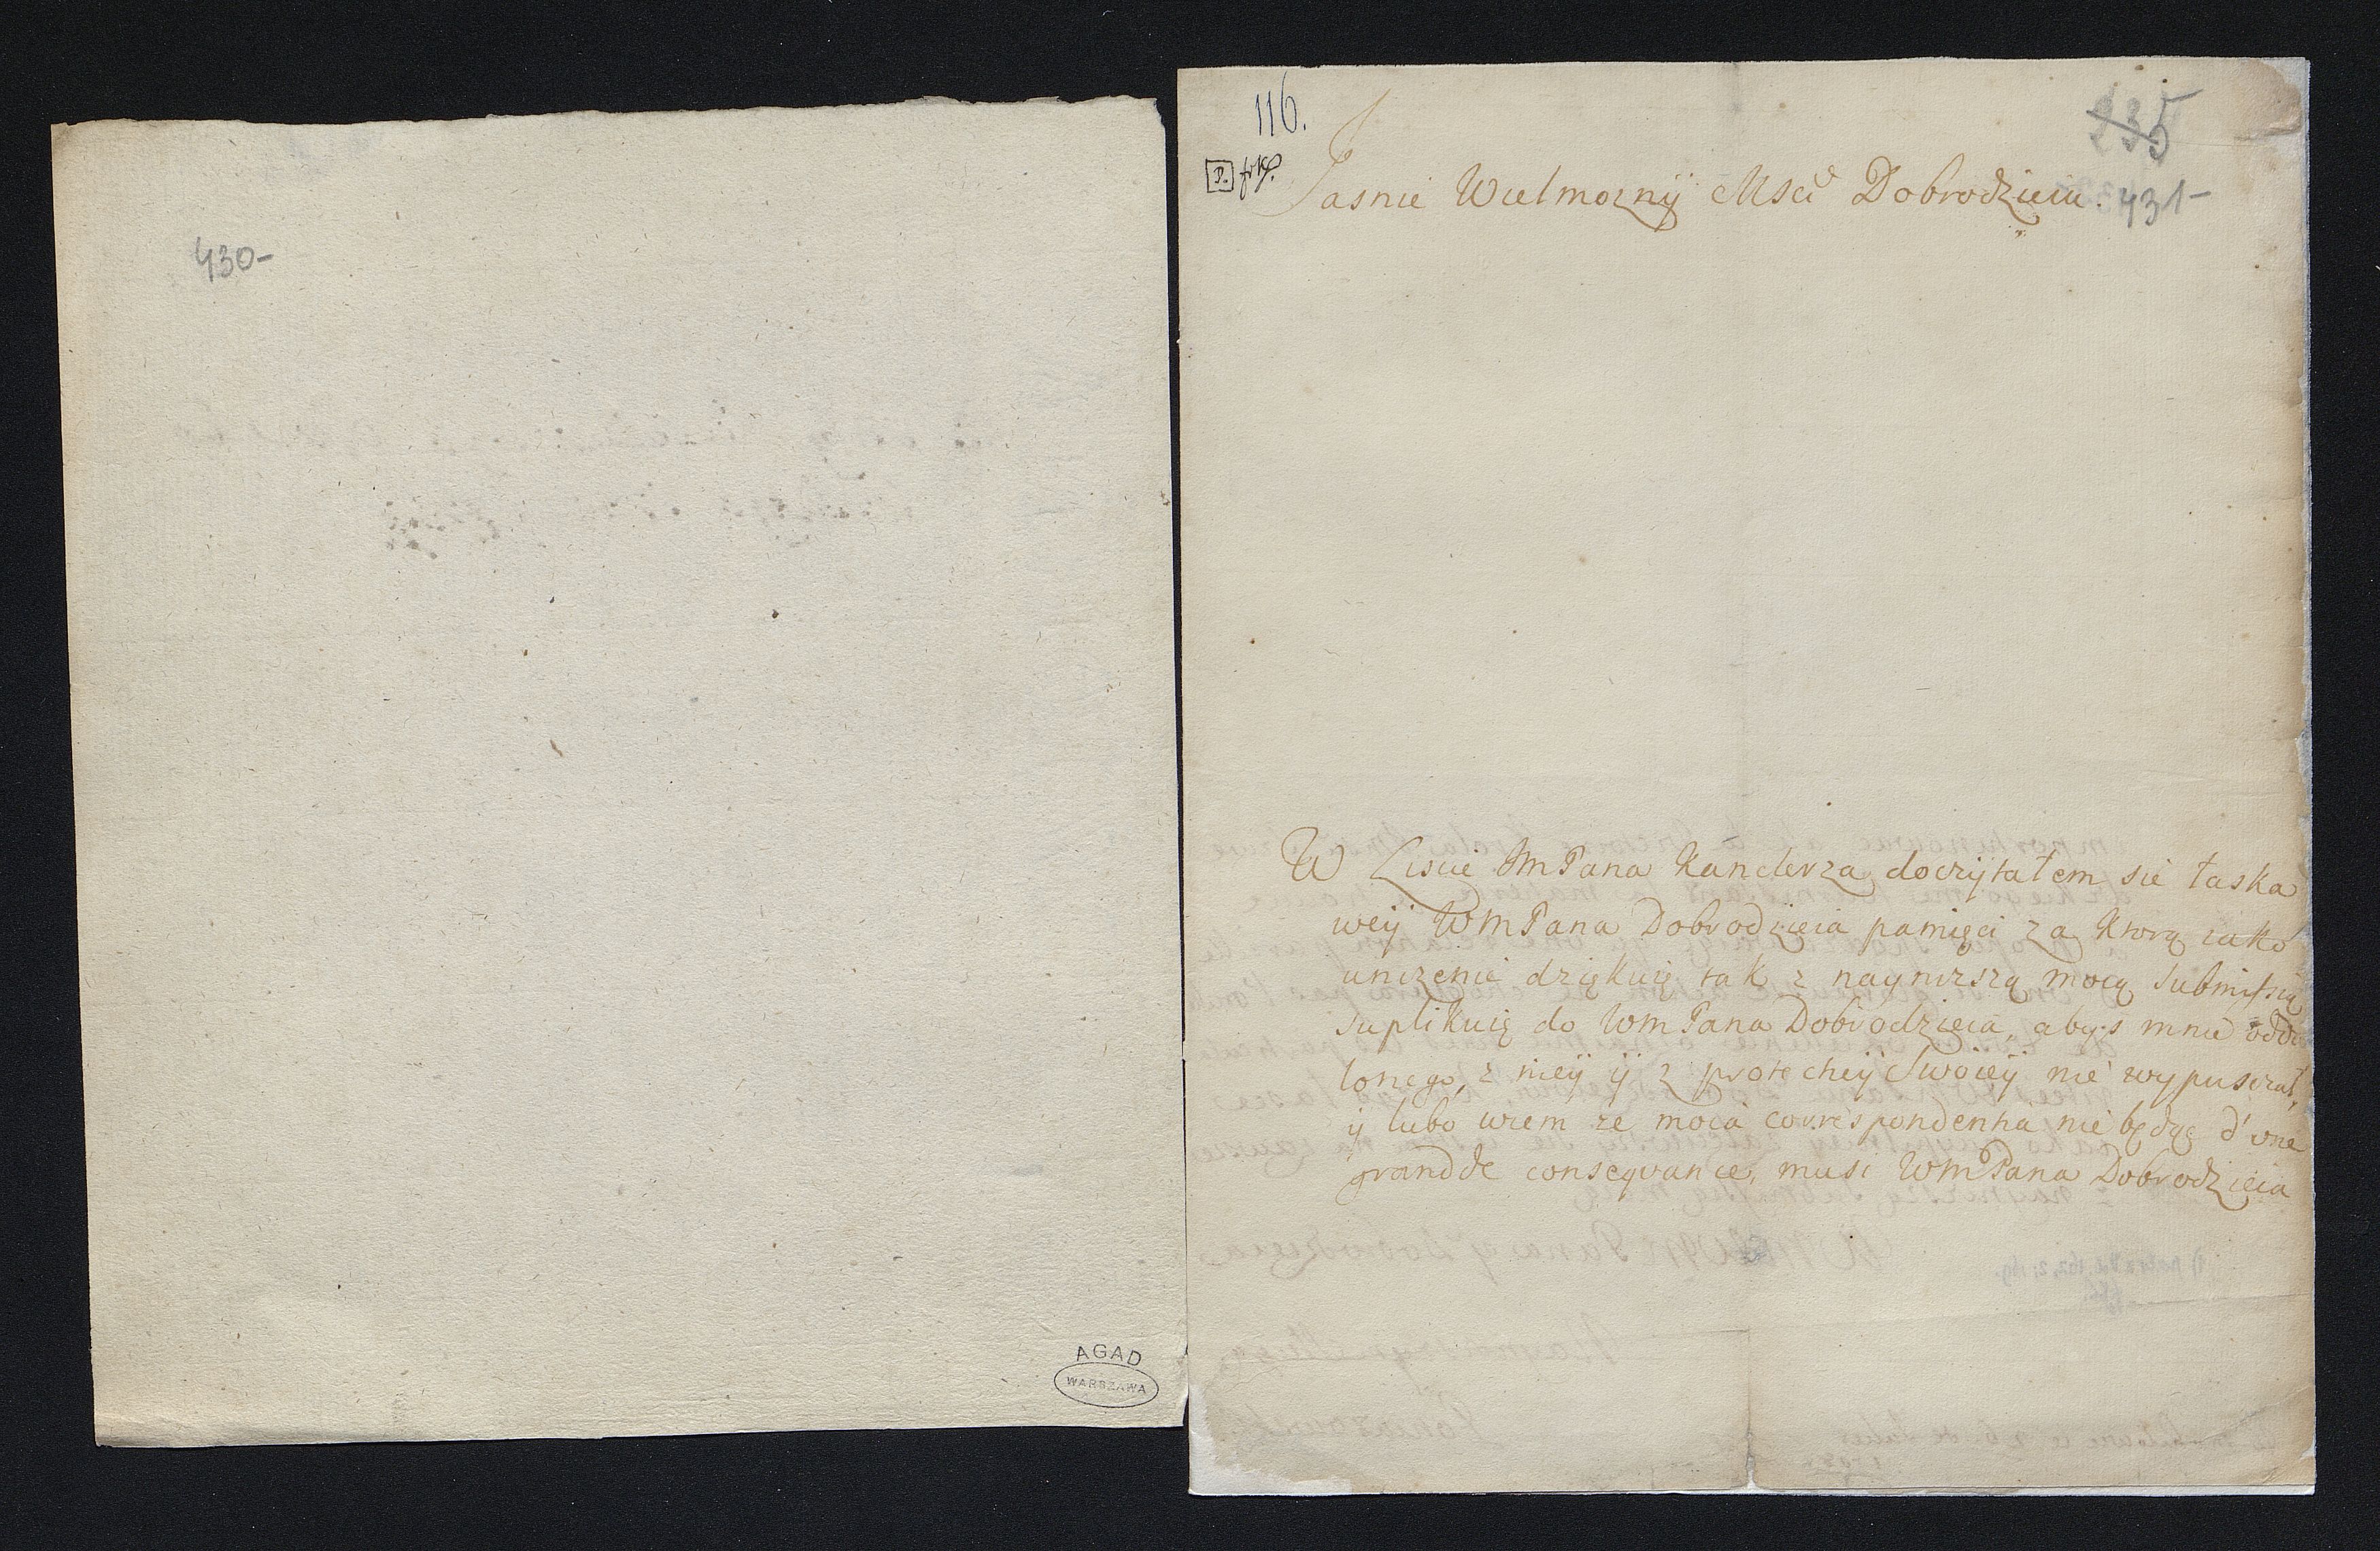 430-
AGAD
WARSZAWA
116.
235
P.
Jasnie Wielmozny Msci Dobrodzieiu.
431-
W Liscie JmPana Kanclerza doczytałem sie łaska
wey WmPana Dobrodzieia pamięci za ktorą iako
unizenie dziękuię tak z nayniszszą moią submissią
suplikuię do WmPana Dobrodzieia, abys mnie odda
lonego, z niey ÿ z protectiey Swoiey nie wypuszczał,
ÿ lubo wiem ze moia correspondentia nie będąc d'une
grandde conseqvance, musi WmPana Dobrodzieia